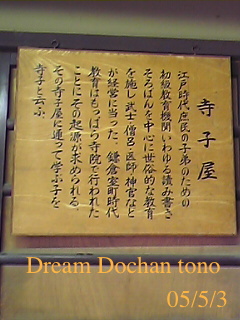 寺子屋
江戸時代庶民の子弟のための
初級教育機関いわゆる讀み書き
そろばんを中心に世俗的な教育
を施し武士僧侶医師神官など
が経営に当った、鎌倉室町時代
教育はもっぱら寺院で行われた
ことにその起源が求められる、
その寺子屋に通って学ぶ子を
寺子と云ふ、
Dream Dochan tono
05/5/3